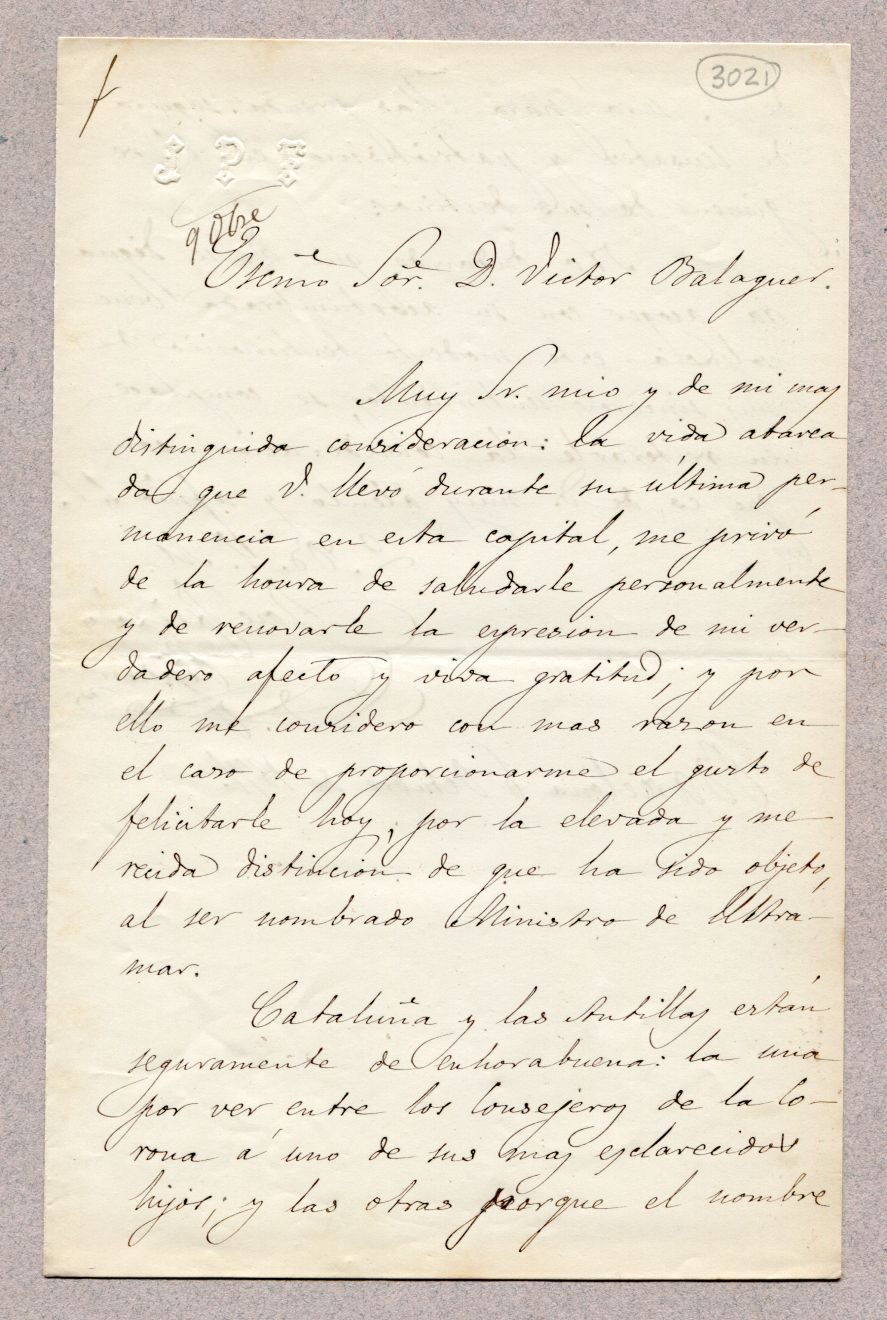 3021
J P F
9 Obre
Escmo Sor. D. Victor Balaguer.
Muy Sr. mio y de mi mas
distinguida consideracion: la vida atarea
da que V. llevó durante su última per-
manencia en esta capital, me privó
de la honra de saludarle personalmente
y de renovarle la expresion de mi ver-
dadero afecto y viva gratitud; y por
ello me considero con mas razon en
el caso de proporcionarme el gusto de
felicitarle hoy, por la elevada y me-
recida distincion de que ha sido objeto,
al ser nombrado Ministro de Ultra-
mar.
Cataluña y las Antillas están
seguramente de enhorabuena: la una
por ver entre los Consejeros de la Co-
rona á uno de sus mas esclarecidos
hijos; y las otras porque el nombre